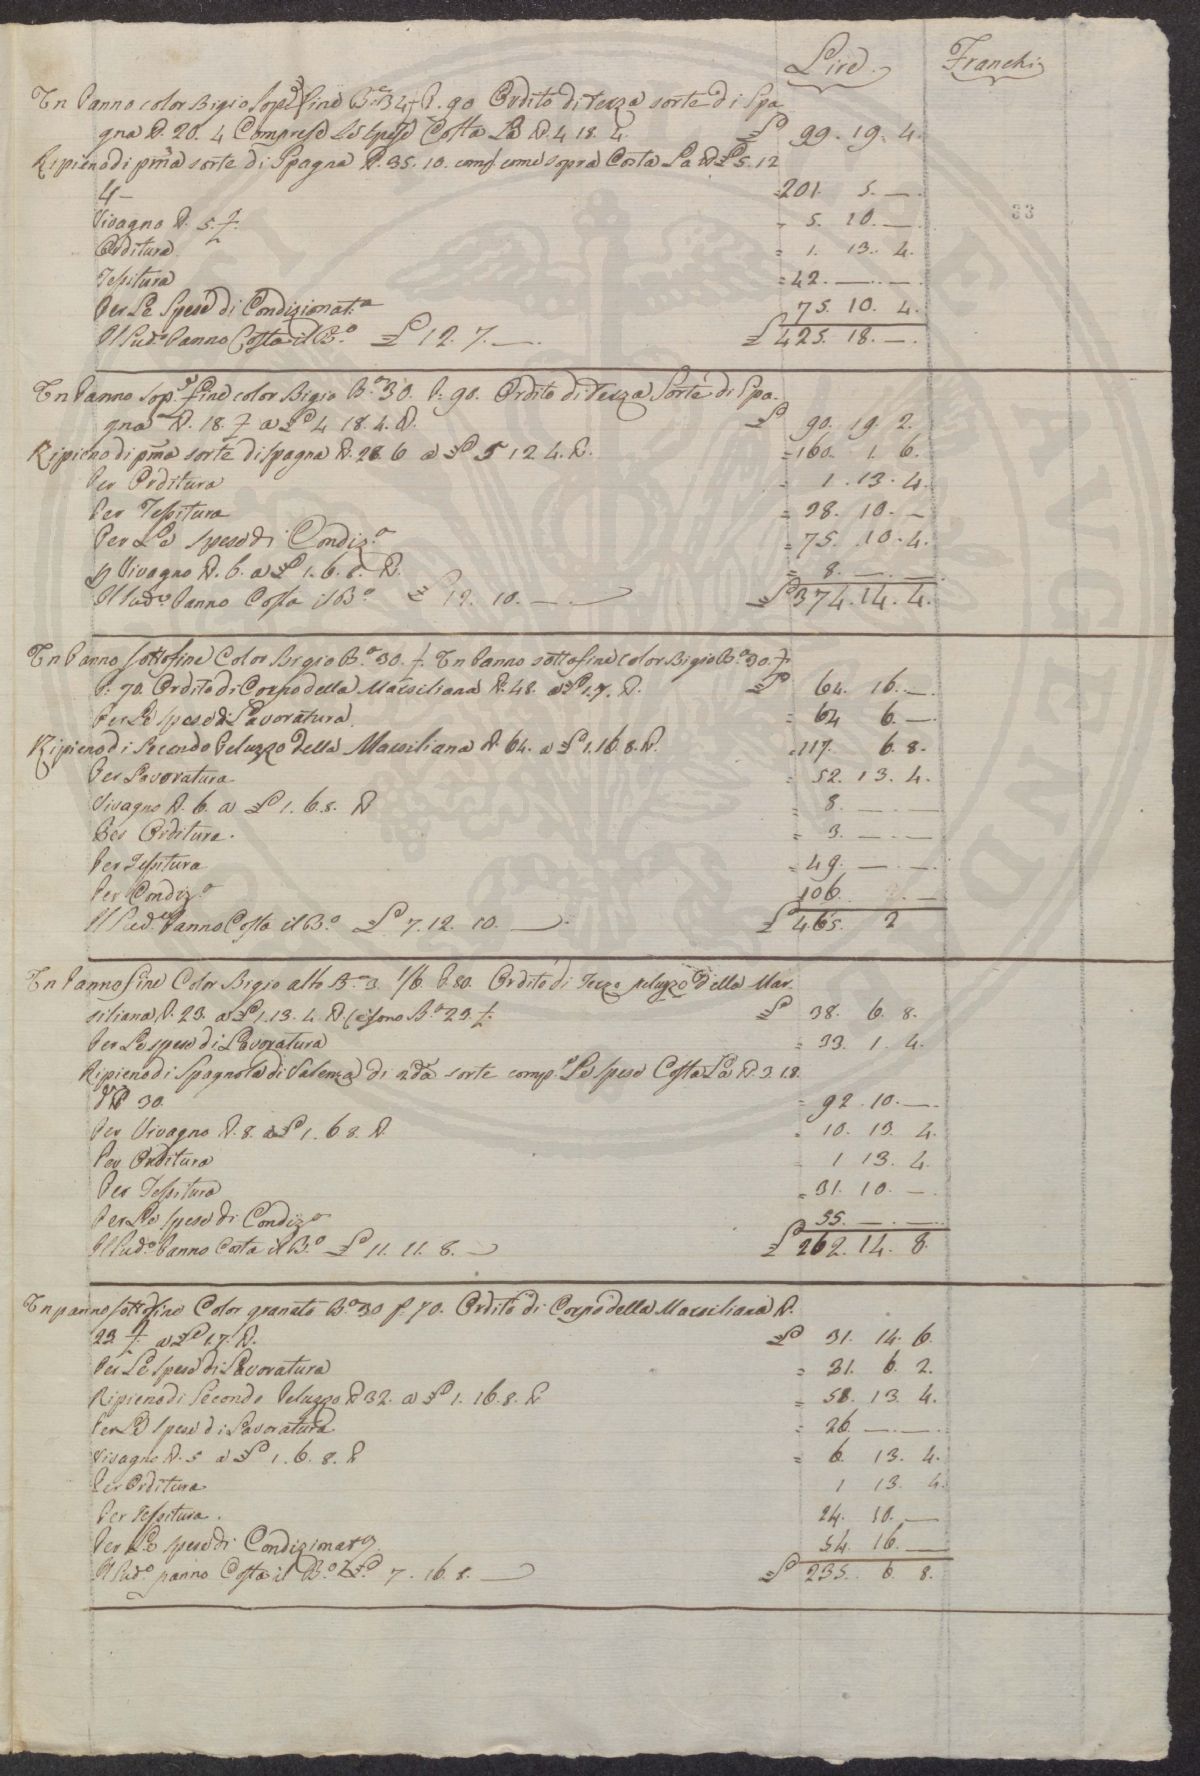 Lire. Franchi
Un Panno color Bigio Sop.ª fine B.ª 34 ½ P. 90 Ordito di terza sorte di Spa
gna ℔. 20. 4 Comprese Le Spese Costa La ℔. 4 18. 4. £ 99. 19. 4.
Ripieno di pma sorte di Spagna ℔. 35. 10. comp come sopra Costa La ℔ £ 5. 12
4 — = 201. 5. —.
Vivagno ℔. 5. ½. = 5. 10. —.
Orditura = 1. 13. 4.
Tessitura = 42. —. —.
Per Le Spese di Condizionat.ª 75. 10. 4.
Il Sud.º Panno Costa il B.º £ 12. 7. —. £ 425. 18. —.
Un Panno sop. fine color Bigio B.ª 30. P. 90. Ordito di terza Sorte di Spa.
gna ℔. 18. ½ a £ 4 18. 4. ℔. £ 90. 19. 2.
Ripieno di pma sorte di Spagna ℔. 28. 6 a £ 5 12 4. ℔. = 160. 1. 6.
Per Orditura = 1. 13. 4.
Per Tessitura = 38. 10. —
Per Le spese di Condiz.ª = 75. 10. 4.
Vivagno ℔. 6. a £ 1. 6. 8. ℔. = 8. — —
Il Sud.º Panno Costa il B.º £ 12. 10. — £ 374. 14. 4.
Un Panno sottofine Color Bigio B.ª 30. ½. Un Panno sottofine color Bigio B.ª 30. ½
P. 70. Ordito di Corpo della Marsiliana ℔. 48. a £ 1. 7. ℔. £ 64. 16. —.
Per Le spese di Lavoratura. = 64 6. —.
Ripieno di Secondo Peluzzo della Marsiliana ℔ 64. a £ 1. 16. 8. ℔. = 117. 6. 8.
Per Lavoratura = 52. 13. 4.
Vivagno ℔. 6. a £ 1. 6. 8. ℔ = 8. — —
Per Orditura. = 3. — —
Per Tessitura = 49. — —
Per Condiz.º 106. —
Il Sud.º Panno Costa il B.º £ 7. 12. 10. —. £ 465. 2
Un Panno fine Color Bigio alto B.ª 3 1/6 P. 80. Ordito di Terzo peluzzo della Mar.
siliana ℔. 23. a £ 1. 13. 4. ℔ (e sono B.ª 23 ½. £ 38. 6. 8.
Per Le spese di Lavoratura = 33. 1. 4.
Ripieno di Spagnola di Valenza di 2da sorte comp. Le spese Costa La ℔. 3 18.
℔ 30. = 92. 10. —.
Per Vivagno ℔. 8. a £ 1. 6 8. ℔. = 10. 13. 4.
Per Orditura 1 13. 4.
Per Tessitura = 31. 10. —
Per Le spese di Condiz.º 55. — —
Il Sud.º Panno Costa il B.º £ 11. 11. 8. — £ 262. 14. 8.
Un panno sottofine Color granato B.ª 30 P. 70. Ordito di Corpo della Marsiliana ℔.
23. ½. a £ 1. 7. ℔. £ 31. 14. 6.
Per Le spese di Lavoratura = 31. 6. 2.
Ripieno di Secondo Peluzzo ℔ 32. a £ 1. 16. 8. ℔ = 58. 13. 4.
Per Le spese di Lavoratura = 26. — —.
Vivagno ℔. 5 a £ 1. 6. 8. ℔ = 6. 13. 4.
Per Orditura 1 13. 4.
Per Tessitura. 24. 10. —
Per Le spese di Condizionat 54. 16. —
Il Sud.º panno Costa il B.º £ 7. 16. 8. — £ 235. 6. 8.
33